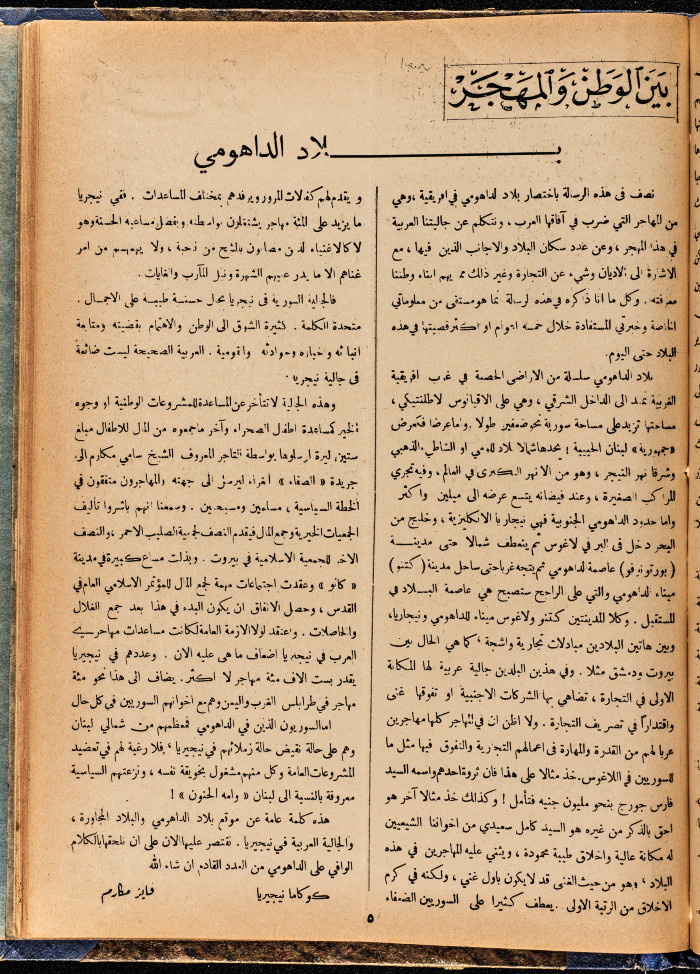 بين الوطن والمهجر
بلاد الداهومي
نصف فى هذه الرسالة باختصار بلاد الداهومي في افريقية ، وهي
من المهاجر التي ضرب في آفاقها العرب ، ونتكلم عن جاليتنا العربية
في هذا المهجر ، وعن عدد سكان البلاد والاجانب الذين فيها ، مع
الاشارة الى الاديان وشيء عن التجارة وغير ذلك مما يهم ابناء وطننا
معرفته . وكل ما انا ذاكره في هذه الرسالة انما هو مستقى من معلوماتي
الخاصة وخبرتي المستفادة خلال خمسة اعوام او اكثر قضيتها في هذه
البلاد حتى اليوم .
بلاد الداهومي سلسلة من الاراضى الخصبة في غرب افريقية
الغربية تمتد الى الداخل الشرقي ، وهي على الاقيانوس الاطلنتيكي ،
مساحتها تزيد على مساحة سورية نحو ضعفين طولا . واما عرضا فكعرض
«جمهورية» لبنان الحبيبة ! يحدها شمالا بلاد التوغو او الشاطئ الذهبي
وشرقا نهر النيجر ، وهو من الانهر الكبرى في العالم ، وفيه تجري
المراكب الصغيرة ، وعند فيضانه يتسع عرضه الى ميلين واكثر
واما حدود الداهومي الجنوبية فهي نيجاريا الانكليزية ، وخليج من
البحر دخل فى البر في لاغوس ثم ينعطف شمالا حتى مدينة
( بورتو نوفو ) عاصمة الداهومي ثم يتجه غربا حتى ساحل مدينة ( كتنو )
ميناء الداهومي والتي على الراجح ستصبح هي عاصمة البلاد في
المستقبل . وكلا المدينتين كتنو ولاغوس ميناء للداهومي ونيجاريا ،
وبين هاتين البلادين مبادلات تجارية واشجة ، كما هي الحال بين
بيروت ودمشق مثلا . وفي هذين البلدين جالية عربية لها المكانة
الاولى في التجارة ، تضاهي بها الشركات الاجنبية او تفوقها غنى
واقتدارا في تصريف التجارة . ولا اظن ان في المهاجر كلها مهاجرين
عربا لهم من القدرة والمهارة فى اعمالهم التجارية والتفوق فيها مثل ما
للسوريين فى اللاغوس . خذ مثالا على هذا فان ثروة احدهم واسمه السيد
فارس جورج بنحو مليون جنيه فتأمل ! وكذلك خذ مثالا آخر هو
احق بالذكر من غيره هو السيد كامل سعيدي من اخواننا الشيعيين
له مكانة عالية واخلاق طيبة محمودة ، ويثني عليه المهاجرين في هذه
البلاد ، وهو من حيث الغنى قد لا يكون باول غني ، ولكنه في كرم
الاخلاق من الرتبة الاولى . يعطف كثيرا على السوريين الضعفاء
ويقدم لهم كفالات المرور ويرفدهم بمختلف المساعدات . ففي نيجريا
ما يزيد على المئة مهاجر يشتغلون بواسطته وبفضل مساعيه الحسنة وهو
لا كالاغنياء الذين مصابون بالشح من ناحية ، ولا يهمهم من امر
غناهم الا ما يدر عليهم الشهرة ونيل المآرب والغايات .
فالجالية السورية فى نيجريا بحال حسنة طيبة على الاجمال .
متحدة الكلمة . كثيرة الشوق الى الوطن والاهتمام بقضيته ومتابعة
انبائه واخباره وحوادثه والقومية . العربية الصحيحة ليست ضائعة
فى جالية نيجريا .
وهذه الجالية لا تتأخر عن المساعدة للمشروعات الوطنية او وجوه
الخير كمساعدة اطفال الصحراء وآخر ما جمعوه من المال للاطفال مبلغ
ستين ليرة ارسلوها بواسطة التاجر المعروف الشيخ سامي مكارم الى
جريدة « الصفاء » الغراء ليرسل الى جهته والمهاجرون متفقون في
الخطة السياسية ، مسلمين ومسيحيين . وسمعنا انهم باشروا تأليف
الجمعيات الخيرية وجمع المال فيقدم النصف لجمعية الصليب الاحمر ، والنصف
الاخر للجمعية الاسلامية في بيروت . وبذلت مساع كبيرة في مدينة
« كانو » وعقدت اجتماعات مهمة لجمع المال للمؤتمر الاسلامي العام في
القدس ، وحصل الاتفاق ان يكون البدء في هذا بعد جمع الغلال
والحاصلات . واعتقد لولا الازمة العامة لكانت مساعدات مهاجري
العرب في نيجيريا اضعاف ما هى عليه الان . وعددهم في نيجيريا
يقدر بست الاف مئة مهاجر لا اكثر . يضاف الى هذا نحو مئة
مهاجر في طرابلس الغرب واليمن وهم مع اخوانهم السوريين في كل حال
اما السوريون الذين في الداهومي فمعظمهم من شمالي لبنان
وهم على حالة نقيض حالة زملائهم في نيجيريا ، فلا رغبة لهم في تعضيد
المشروعات العامة وكل منهم مشغول بخويقة نفسه ، ونزعتهم السياسية
معروفة بالنسبة الى لبنان « وامه الحنون » !
هذه كلمة عامة عن موقع بلاد الداهومي والبلاد المجاورة ،
والجالية العربية في نيجيريا . نقتصر عليها الان على ان نلحقها بالكلام
الوافي على الداهومي من العدد القادم ان شاء الله
كوكاما نيجيريا فايز مكارم
٥